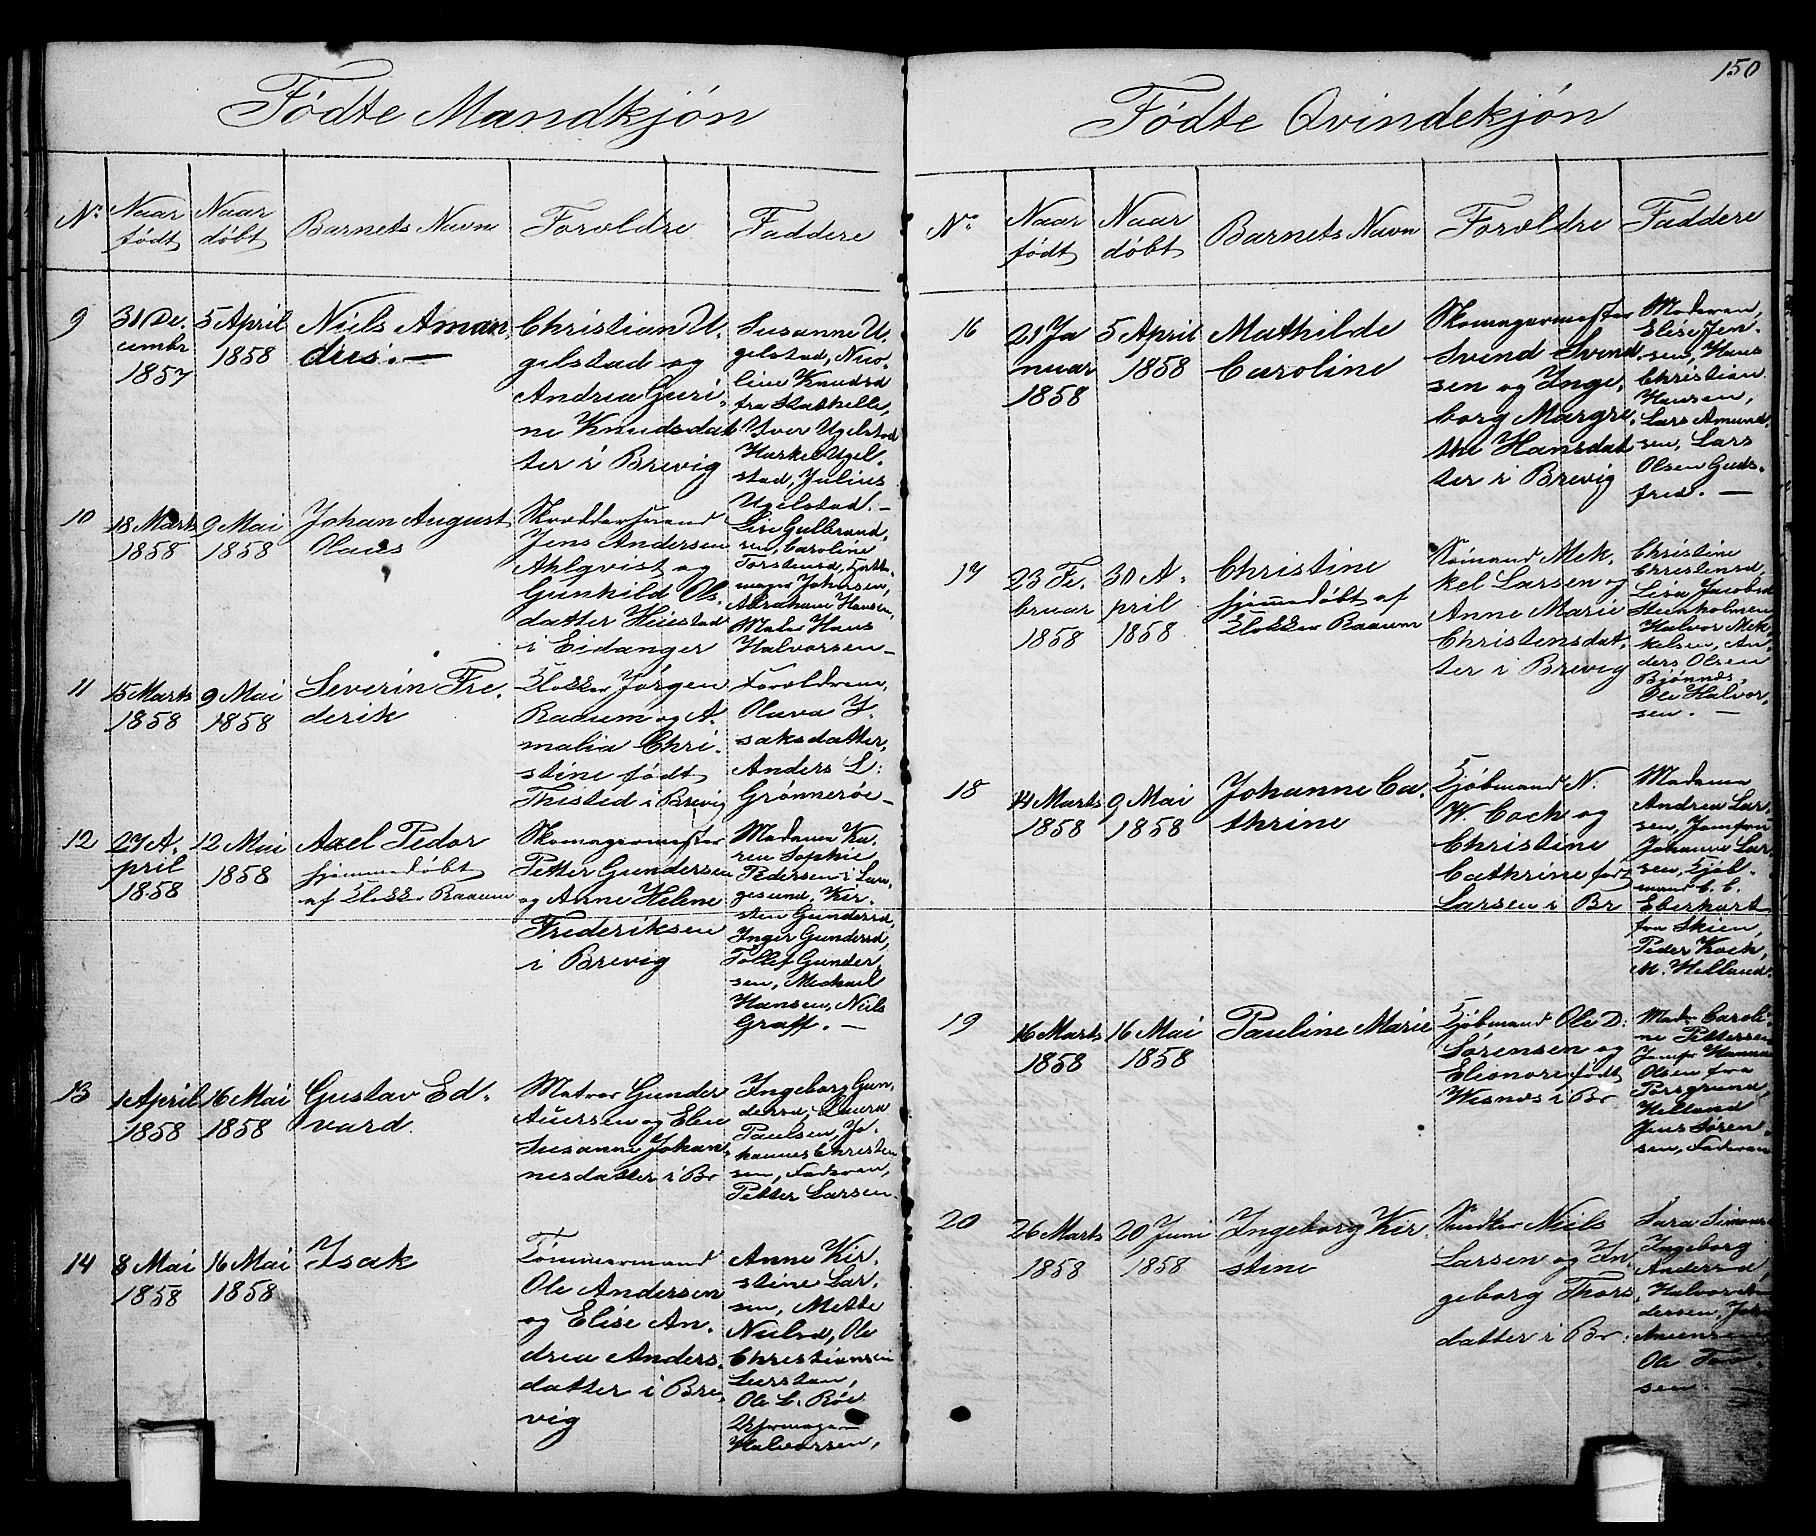 150
Fødte Mandkjøn
No Naar født Naar døbt Barnets Navn Forældre Faddere
9
31 De-
cembr
1857
5 April
1858
Niels Aman-
dus. —
Christian U-
gelstad og
Andrea Guri-
ne Knudsdat-
ter i Brevig
Susanne U-
gelstad, Nico-
line Knudsd
fra Stathelle,
Iver Ugelstad
Ugel-
stad, Julius
Ugelstad. —
10
18 Marts
1858
9 Mai
1858
Johan August
Olaus
Skræddersvend
Jens Andersen
Ahlqvist og
Gunhild Ols-
datter Heistad
i Eidanger
Lise Gulbrand-
sen, Caroline
Torstensd,
mager Johansen,
Abraham Hansen,
Maler Hans
Halvorsen —
11
15 Marts
1858
9 Mai
1858
Severin Fre-
derik
Klokker Jørgen
Raaum og A-
malia Chri-
stine født
Thisted i Brevig
Forældrene,
Olava I-
saksdatter,
Anders L:
Grønnerøe —
12
27 A-
pril
1858
12 Mai
1858
Axel Pedor
hjemmedøbt
af Klokker Raaum
Skomagermester
Petter Gundersen
og Anne Helene
Frederiksen
i Brevig
Madame Ka-
ren Sophie
Pedersen i Lan-
gesund, Kir-
sten Gundersd,
Inger Gundersd,
Tollef Gunder-
sen, Michael
Hansen, Niels
Graff. —
13
1 April
1858
16 Mai
1858
Gustav Ed-
vard.
Matros Gunder
Auersen og Elen
Susanne Johan-
nesdatter i Br
Ingeborg Gun-
dersd, Laura
Paulsen, Jo-
hannes Christen-
sen, Faderen,
Petter Larsen.
14
8 Mai
1858
16 Mai
1858
Isak
Tømmermand
Ole Andersen
og Elise An-
drea Anders-
datter i Bre-
vig
Anne Kir-
stine Lar-
sen, Mette
Nielsd, Ole
Christiansen
Ole L. Røe
Halvorsen,
Fødte Qvindekjøn
No Naar født Naar døbt Barnets Navn Forældre Faddere
16
21 Ja
nuar
1858
5 April
1858
Mathilde
Caroline
Skomagermester
Svend Svend-
sen og Inge-
borg Margre-
the Hansdat-
ter i Brevig
Moderen,
Elise Jen-
sen, Hans
Christian
Hansen,
Lars Amund-
sen, Lars
Olsen Guds-
fred. —
17
23 Fe-
bruar
1858
30 A-
pril
1858
Christine
hjemmedøbt af
Klokker Raaum
Sømand Mek-
kel Larsen og
Anne Marie
Christensdat-
ter i Brevig
Christine
Christensd,
Lisa Jacobsd
Steinholmen
Halvor Mek-
kelsen, An-
ders Olsen
Bjønnes,
Ole Halvor-
sen. —
18
14 Marts
1858
9 Mai
1858
Johanne Ca-
thrine
Kjøbmand N.
W. Coch og
Christine
Cathrine født
Larsen i Br
Madame
Andrea Lar-
sen, Jomfru
Johanne Lar-
sen, Kjøb-
mand C. C.
Eberhart
fra Skien,
Peder Kock,
M. Helland.
19
16 Marts
1858
16 Mai
1858
Pauline Marie
Kjøbmand Ole D:
Sørensen og
Eleonore født
Wisnes i Br
Mad. Caroli-
ne Pettersen
Jomfr Hanna
Olsen fra
Porsgrund,
Helland
Jens Søren-
sen, Faderen
20
26 Marts
1858
20 Juni
1858
Ingeborg Kir-
stine
Snedker Niels
Larsen og In-
geborg Thors-
datter i Br:
Sara Simons
Ingeborg
Andersd,
Halvor An-
dersen,
Ole
sen. —